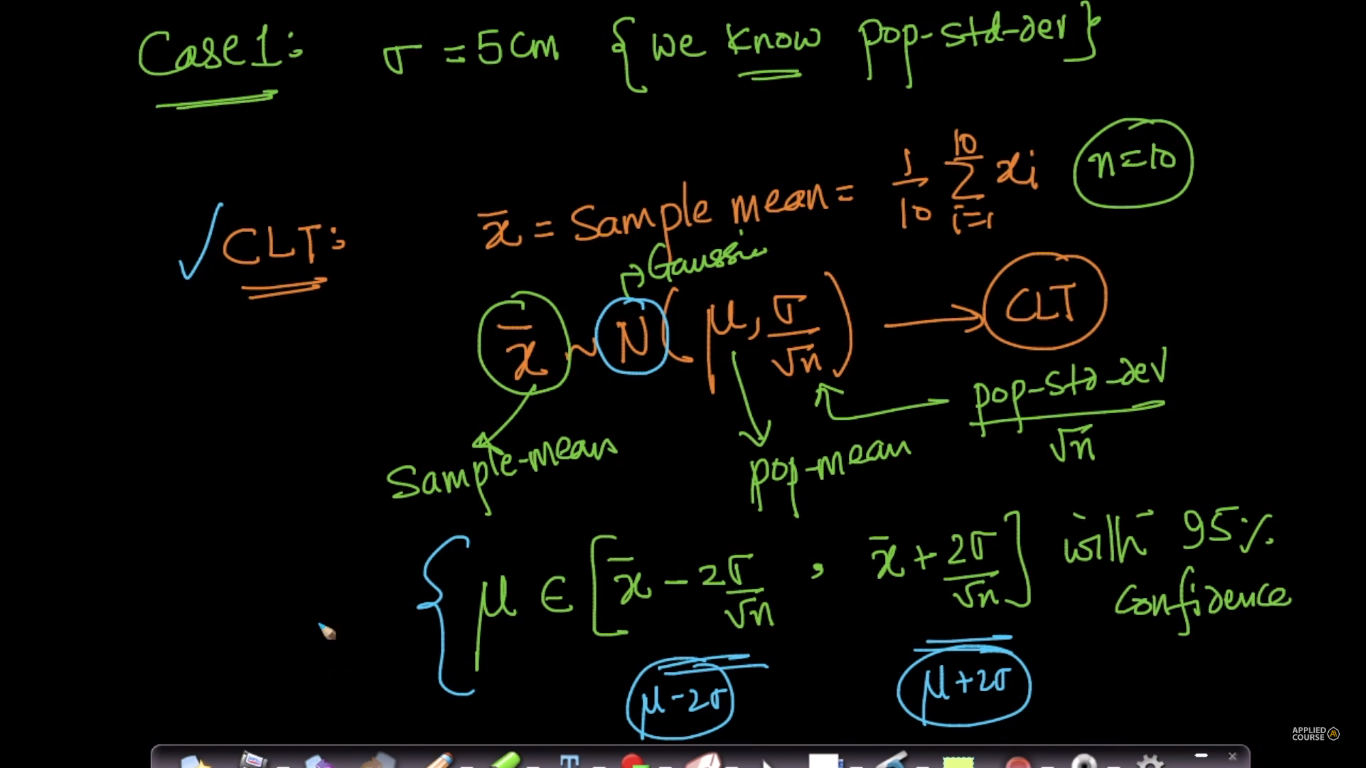 Case1: σ = 5cm {we know pop-std-dev}
CLT: x̄ = Sample mean = 1/10 Σ_{i=1}^{10} xi n=10
Gaussian
x̄ ~ N(μ, σ/√n) → CLT
Sample-mean pop-mean pop-std-dev/√n
{ μ ∈ [x̄ - 2σ/√n , x̄ + 2σ/√n] with 95% confidence
μ-2σ μ+2σ
APPLIED
COURSE